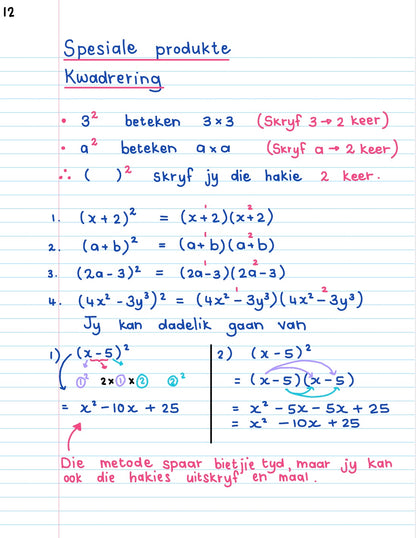 12
Spesiale produkte
Kwadrering
• 3² beteken 3 × 3 (Skryf 3 → 2 keer)
• a² beteken a × a (Skryf a → 2 keer)
∴ ( )² skryf jy die hakie 2 keer.
1. (x + 2)² = (x + 2)(x + 2)
1 2
2. (a + b)² = (a + b)(a + b)
1 2
3. (2a - 3)² = (2a - 3)(2a - 3)
1 2
4. (4x² - 3y³)² = (4x² - 3y³)(4x² - 3y³)
Jy kan dadelik gaan van
1) (x - 5)²
①² 2 × ① × ② ②²
= x² - 10x + 25
2) (x - 5)²
= (x - 5)(x - 5)
= x² - 5x - 5x + 25
= x² - 10x + 25
Die metode spaar bietjie tyd, maar jy kan
ook die hakies uitskryf en maal.